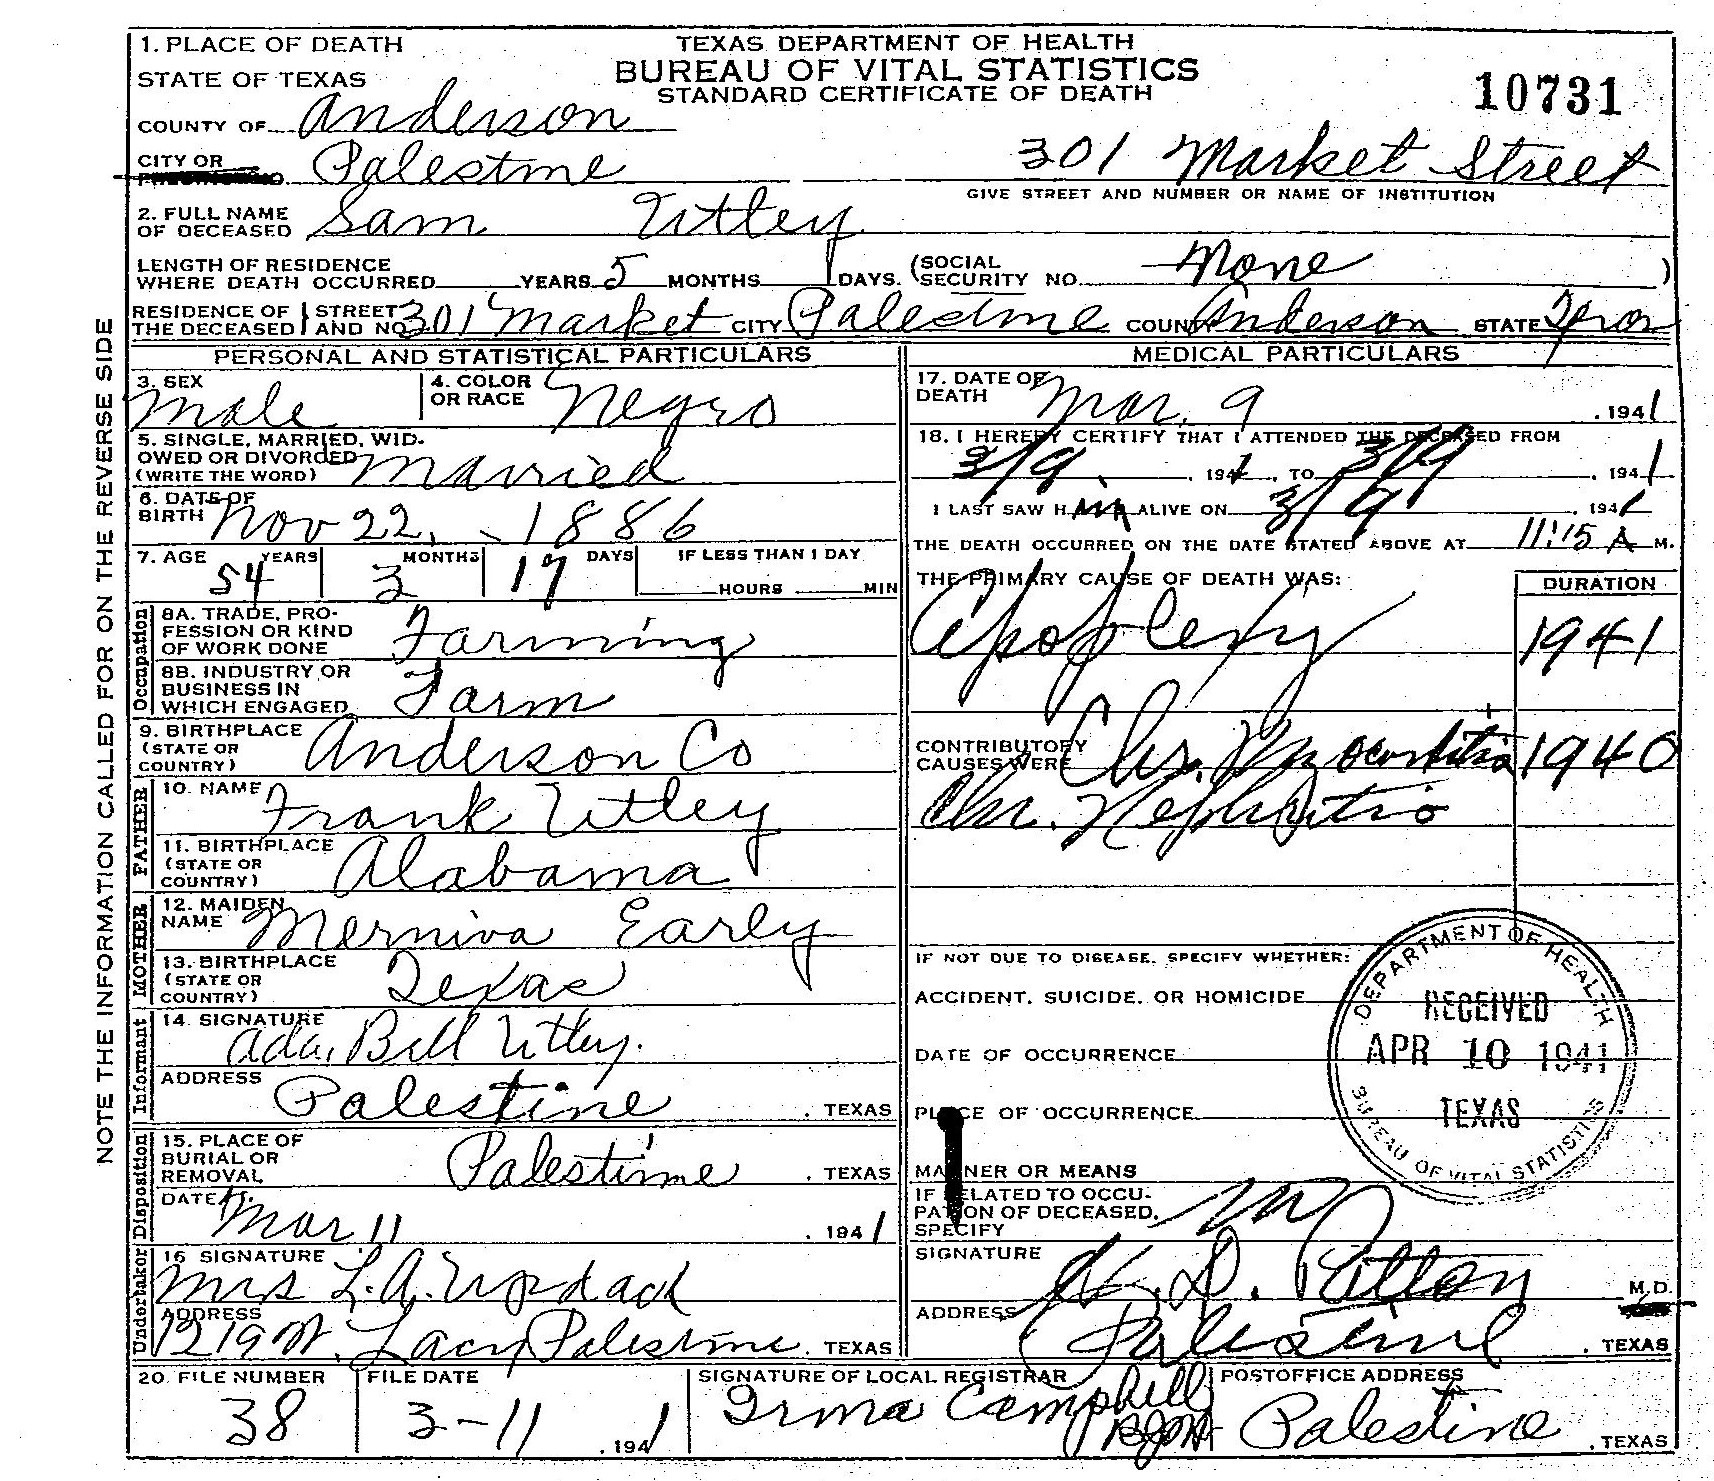 1. PLACE OF DEATH
STATE OF TEXAS
TEXAS DEPARTMENT OF HEALTH
BUREAU OF VITAL STATISTICS
STANDARD CERTIFICATE OF DEATH
10731
COUNTY OF Anderson
CITY OR Palestine 301 Market Street
GIVE STREET AND NUMBER OR NAME OF INSTITUTION
2. FULL NAME OF DECEASED Sam Utley
LENGTH OF RESIDENCE WHERE DEATH OCCURRED YEARS 5 MONTHS DAYS. (SOCIAL SECURITY NO. None )
RESIDENCE OF THE DECEASED STREET AND NO. 301 Market CITY Palestine COUNTY Anderson STATE Texas
PERSONAL AND STATISTICAL PARTICULARS
3. SEX Male
4. COLOR OR RACE Negro
5. SINGLE, MARRIED, WIDOWED OR DIVORCED (WRITE THE WORD) Married
6. DATE OF BIRTH Nov 22, 1886
7. AGE 54 YEARS 3 MONTHS 17 DAYS IF LESS THAN 1 DAY HOURS MIN
Occupation
8A. TRADE, PROFESSION OR KIND OF WORK DONE Farming
8B. INDUSTRY OR BUSINESS IN WHICH ENGAGED Farm
9. BIRTHPLACE (STATE OR COUNTRY) Anderson Co
FATHER
10. NAME Frank Utley
11. BIRTHPLACE (STATE OR COUNTRY) Alabama
MOTHER
12. MAIDEN NAME Merniva Early
13. BIRTHPLACE (STATE OR COUNTRY) Texas
Informant
14. SIGNATURE Ada Bell Utley.
ADDRESS Palestine, TEXAS
Disposition
15. PLACE OF BURIAL OR REMOVAL Palestine, TEXAS
DATE Mar 11, 1941
Undertaker
16 SIGNATURE Mrs L.A.
ADDRESS 1219 W. Lacy Palestine, TEXAS
MEDICAL PARTICULARS
17. DATE OF DEATH Mar. 9, 1941
18. I HEREBY CERTIFY THAT I ATTENDED THE DECEASED FROM
3/9, 1941, TO 3/9, 1941
I LAST SAW HIM ALIVE ON 3/9, 1941
THE DEATH OCCURRED ON THE DATE STATED ABOVE AT 11:15 A M.
THE PRIMARY CAUSE OF DEATH WAS: DURATION
Apoplexy 1941
CONTRIBUTORY CAUSES WERE Chr. Myocarditis + 1940
Chr. Nephritis
IF NOT DUE TO DISEASE, SPECIFY WHETHER:
ACCIDENT, SUICIDE, OR HOMICIDE
DATE OF OCCURRENCE
PLACE OF OCCURRENCE
MANNER OR MEANS
IF RELATED TO OCCUPATION OF DECEASED, SPECIFY
SIGNATURE Patton M.D.
ADDRESS Palestine, TEXAS
DEPARTMENT OF HEALTH
RECEIVED
APR 10 1941
TEXAS
BUREAU OF VITAL STATISTICS
20. FILE NUMBER 38
FILE DATE 3-11, 1941
SIGNATURE OF LOCAL REGISTRAR Irma Campbell
POSTOFFICE ADDRESS Palestine, TEXAS
NOTE THE INFORMATION CALLED FOR ON THE REVERSE SIDE